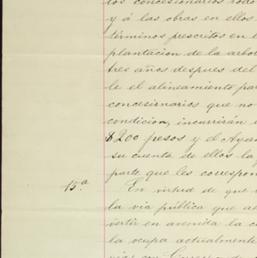 los concesionarios todo
y á las obras en ellos
términos prescritos en el
plantacion de la arbol
tres años despues del
le el alineamiento par
concesionarios que no
condicion, incurrirán e
$200 pesos y el Ayun
su cuenta de ellos la p
parte que les correspon
15.a
En virtud de que
la via pública que ac
vertir en avenida la c
la ocupa actualmente